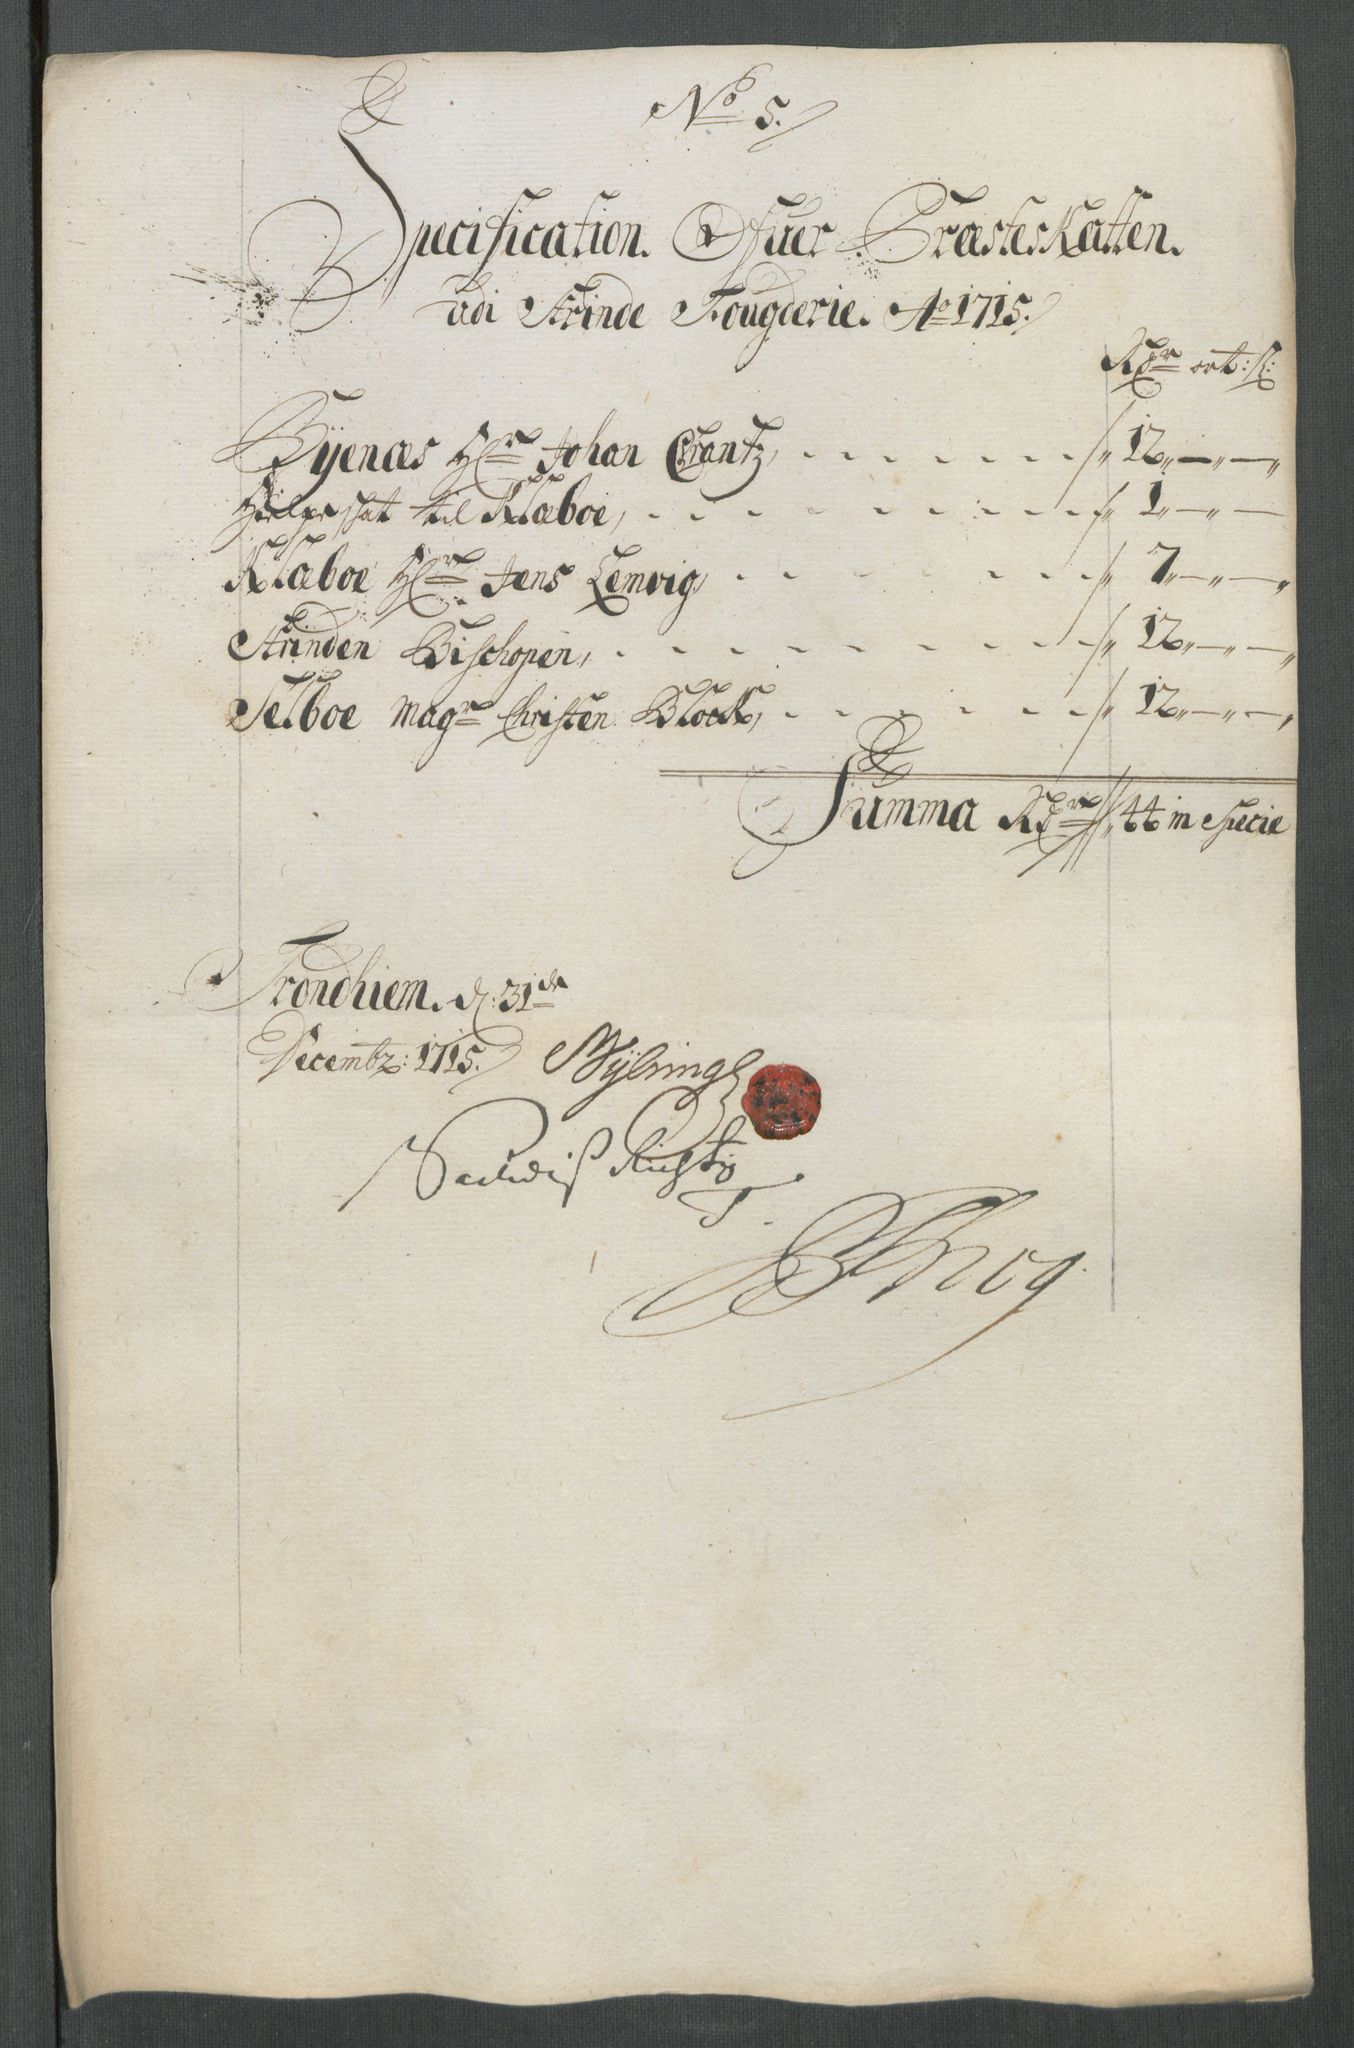 No 5.
Specification Ofuer PræsteSkatten
udi Strinde Fougderie. Ao 1715.
Rdr ort: s:
Byenæs Hr Johan Crantz, 12
til Klæboe, 1
Klæboe Hr Jens Lemvig, 7
Strinden Bischopen, 12
Selboe Magr Christen Block, 12
Summa Rdr 44 in Specie
Trondhiem. d: 31de
Decembr: 1715.
Rigtig